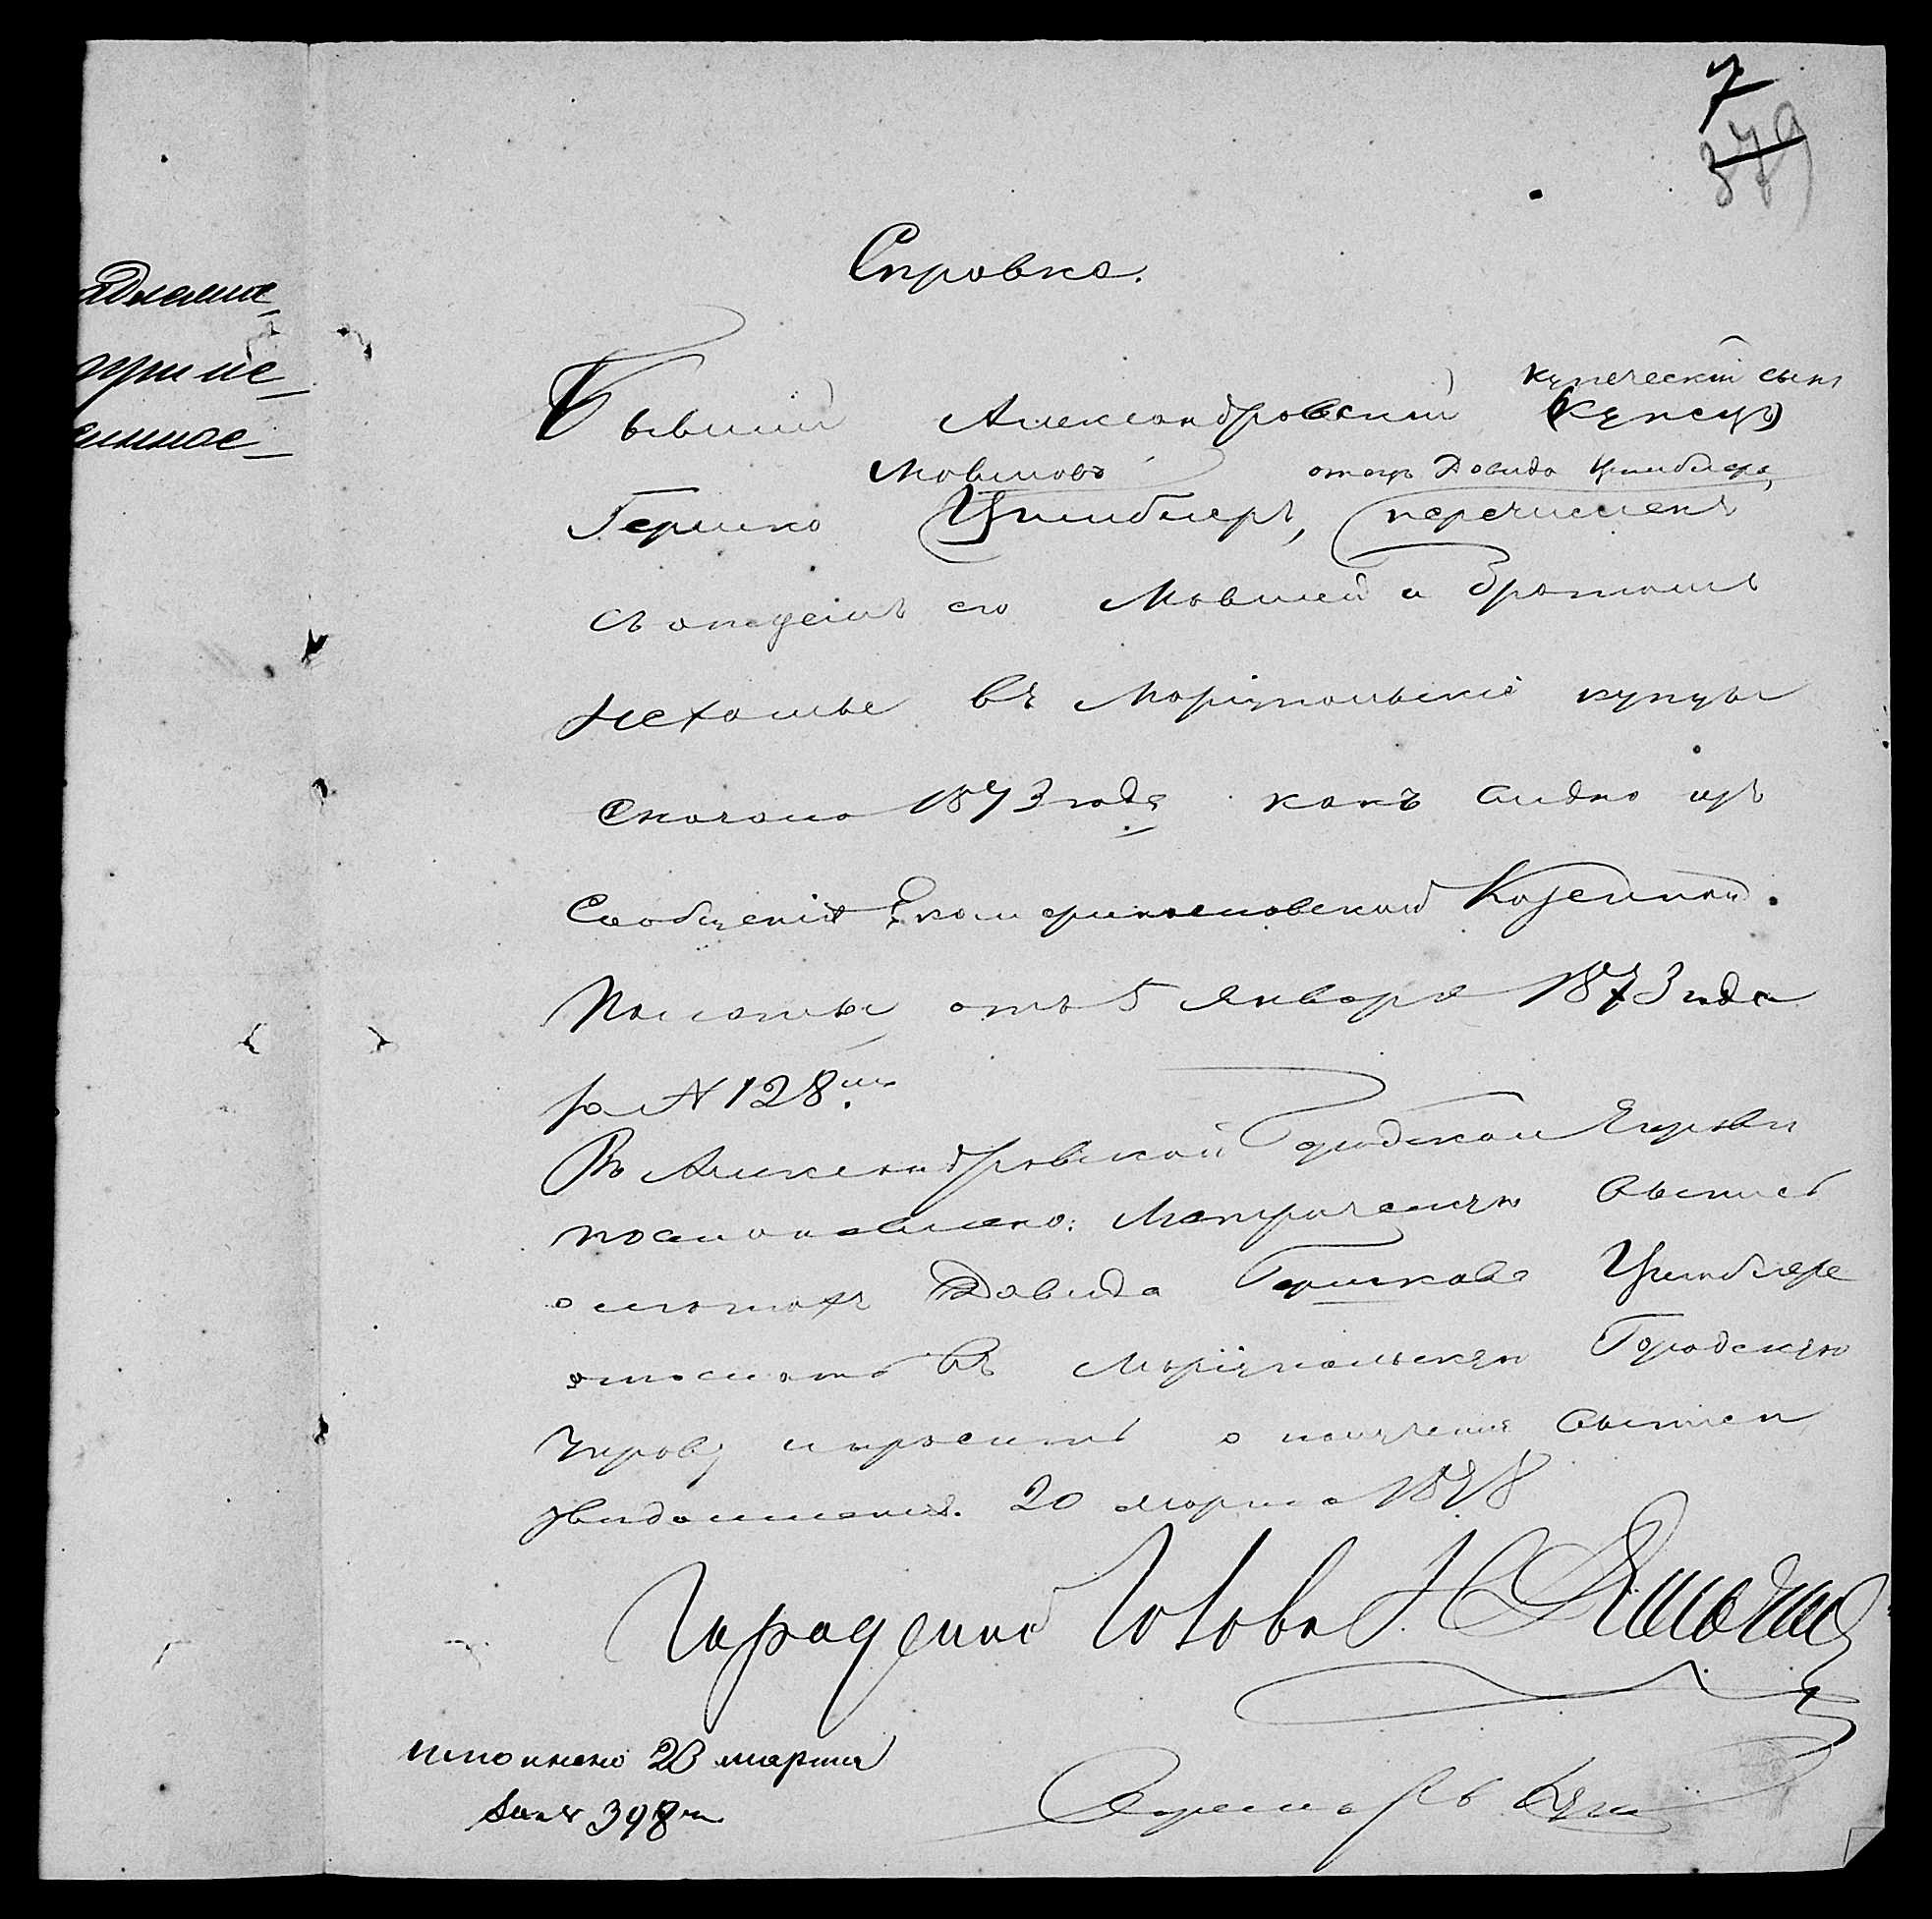 7
379
Справка.
купеческій сынъ
Бывшій Александровскій (купецъ)
Мовшовъ отецъ Давида Цимблера,
Гершко Цимблеръ, перечисленъ
съ отцемъ его Мовшей и братомъ
въ Маріупольскіе купцы
сначала 1873 года какъ видно изъ
Сообщенія Екатеринославской Казенной
Палаты отъ 5 Января 1873 года
за N 128.
Въ Александровской Городской Управѣ
постановлено: Метрическую выпись
Давида Гершкова Цимблера
отослать въ Маріупольскую Городскую
Управу и просить о полученіи выписи
увѣдомленія. 20 марта 1878
Городской Голова
исполнено 20 марта
за N 398
Секретарь